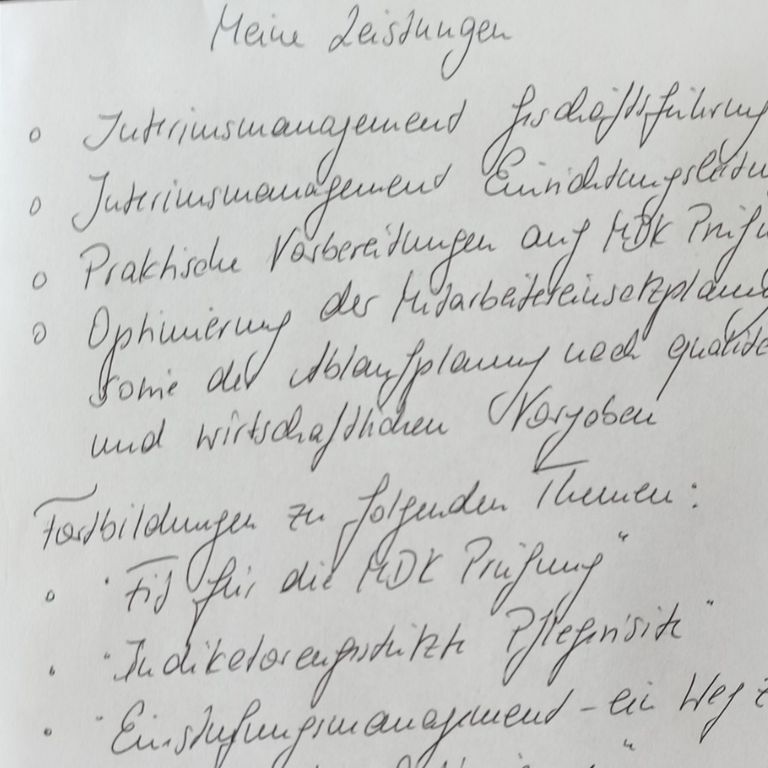 Meine Leistungen
o Interimsmanagement Geschäftsführung
o Interimsmanagement Einrichtungsleitu
o Praktische Vorbereitungen auf MDK Prüfu
o Optimierung der Mitarbeitereinsatzplanu
sowie der Ablaufplanung nach qualita
und wirtschaftlichen Vorgaben
Fortbildungen zu folgenden Themen:
o "Fit für die MDK Prüfung"
• "Indikatorengestützte Pflegevisite"
• "Einstufungsmanagement - ein Weg z